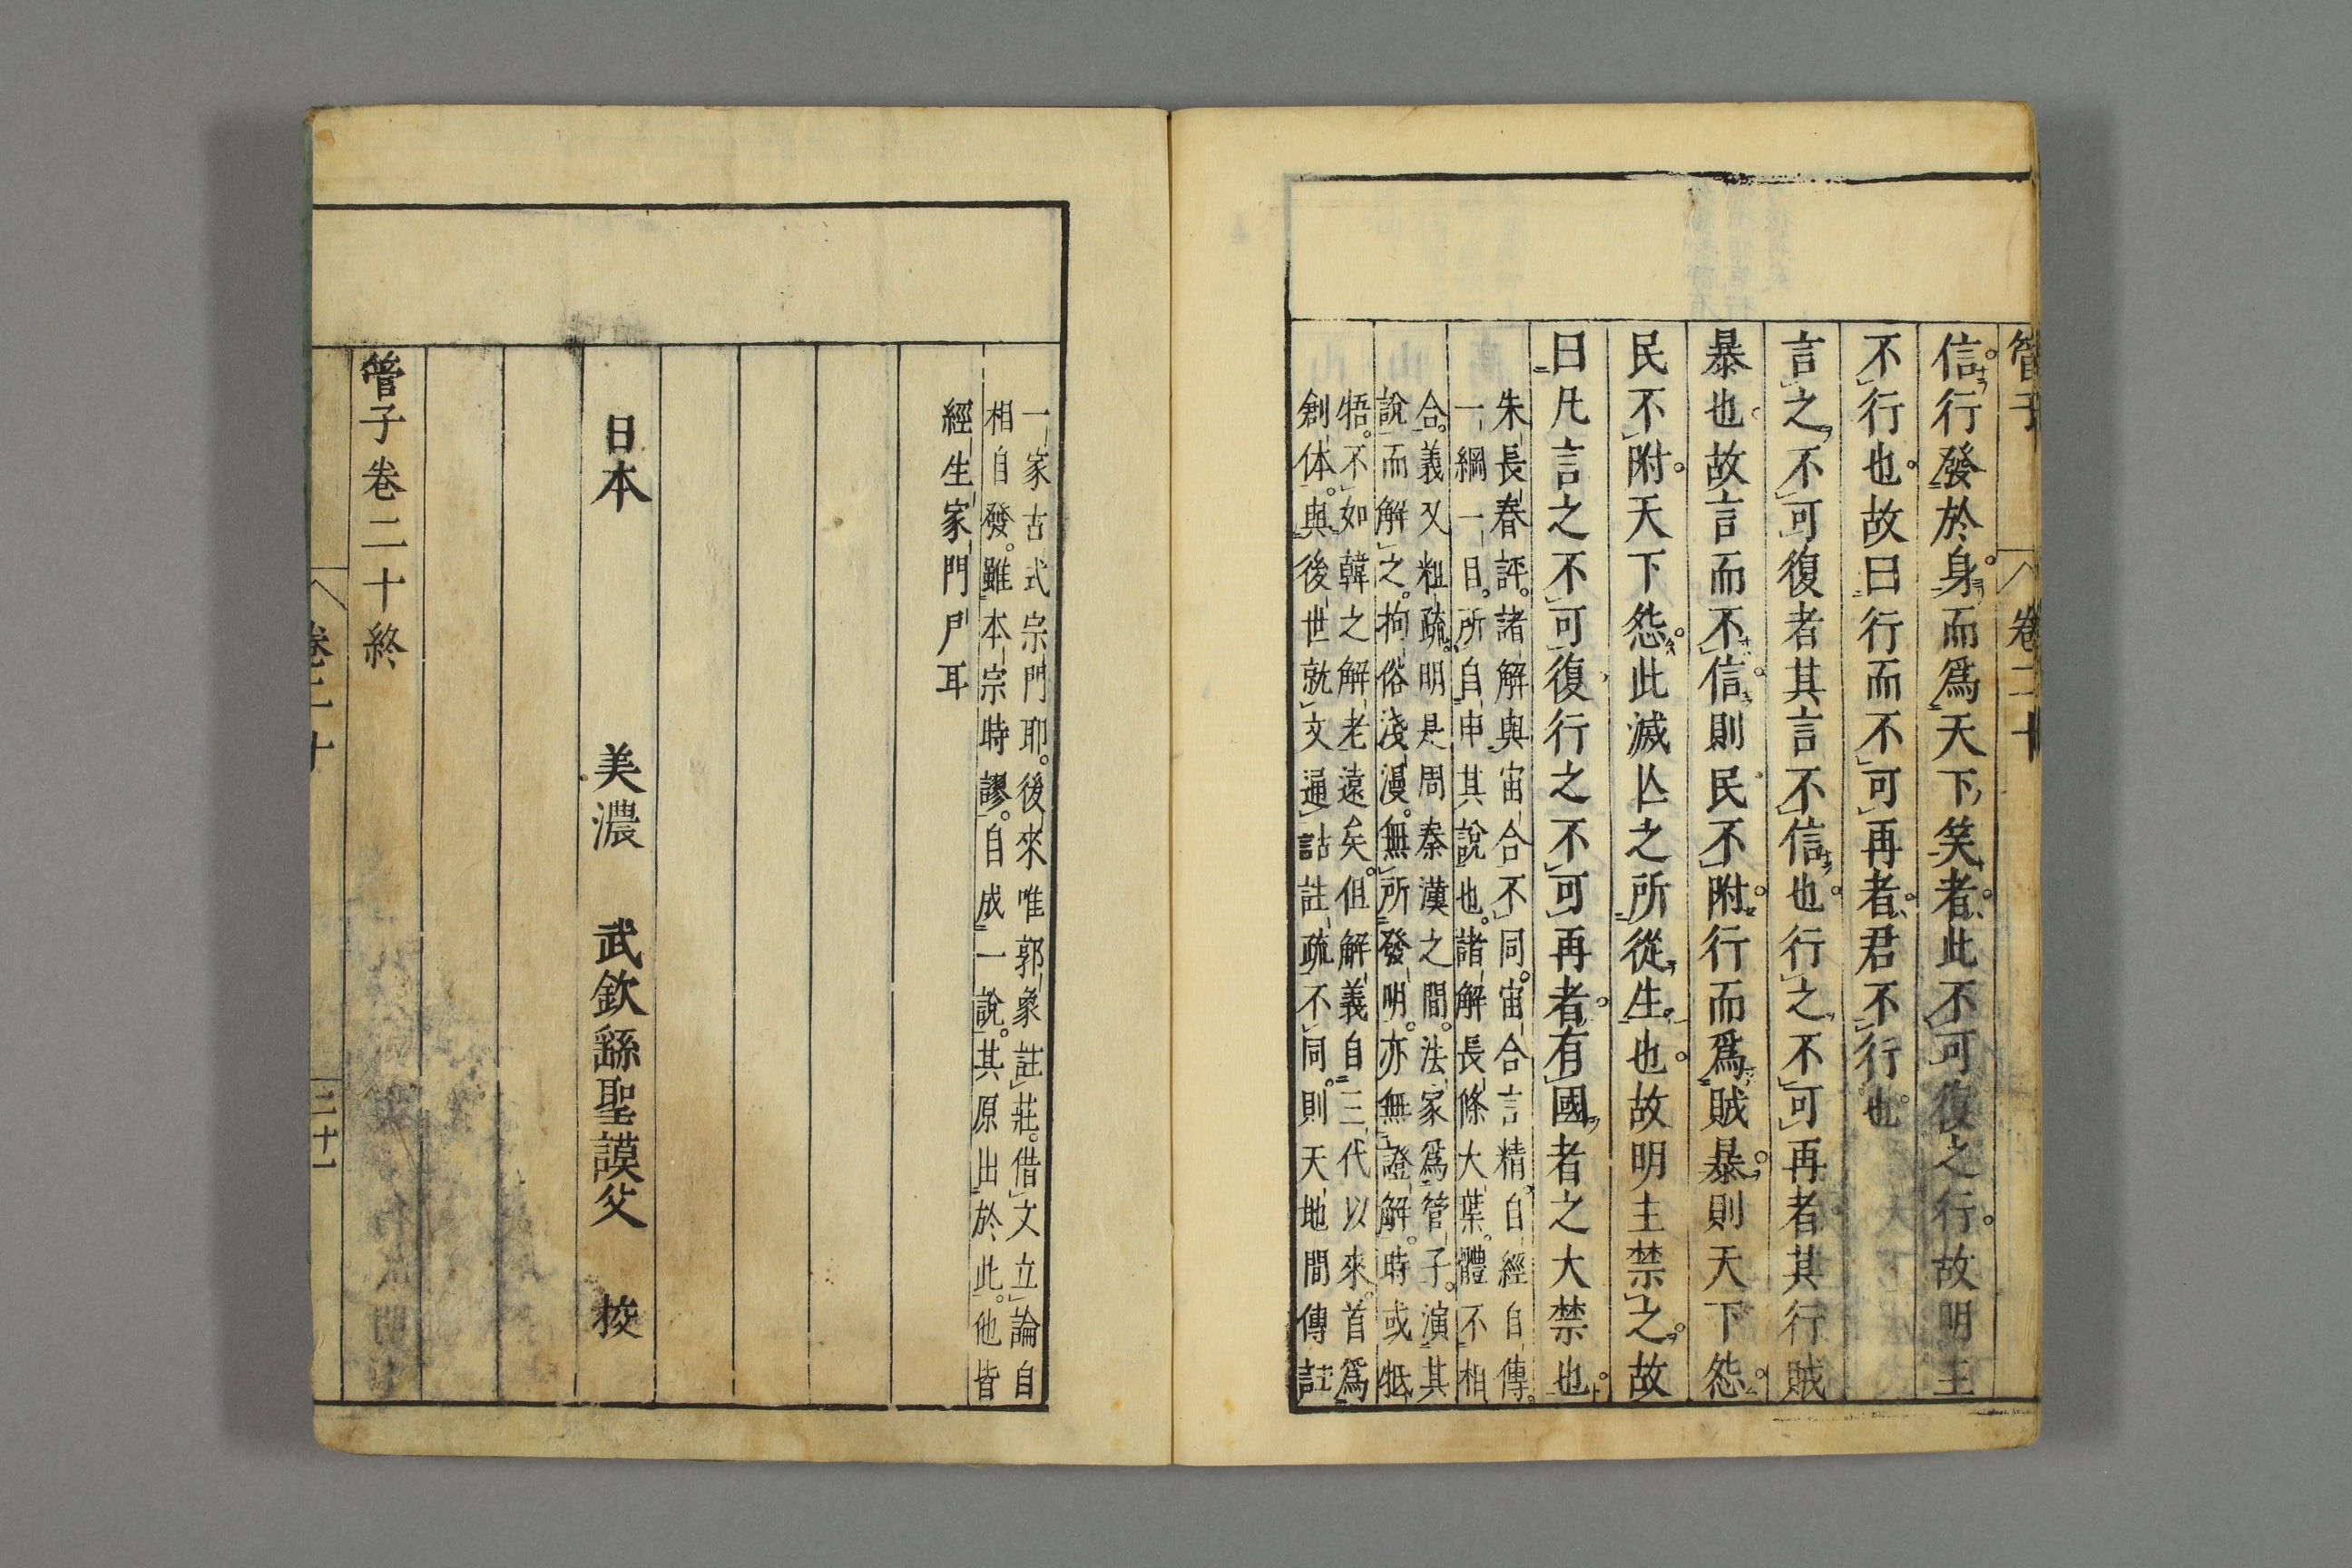 管子 卷二十
信行發於身而爲天下笑者此不可復之行故明主
不行也故曰行而不可再者君不行也
言之不可復者其言不信也行之不可再者其行賊
暴也故言而不信則民不附行而爲賊暴則天下怨
民不附天下怨此滅亾之所從生也故明主禁之故
曰凡言之不可復行之不可再者有國者之大禁也
朱長春評諸解與宙合不同宙合言精自經自傳
一綱一目所自申其說也諸解長條大葉體不相
合義又粗疏明是周秦漢之間法家爲管子演其
說而解之拘俗淺漫無所發明亦無證解時或牴
牾不如韓之解老遠矣但解義自三代以來首爲
創体與後世就文通詁註疏不同則天地間傳註
一家古式宗門耶後來唯郭象註莊借文立論自
相自發雖本宗時謬自成一說其原出於此他皆
經生家門戶耳
日本 美濃 武欽繇聖謨父 挍
管子卷二十終
卷二十 三十一